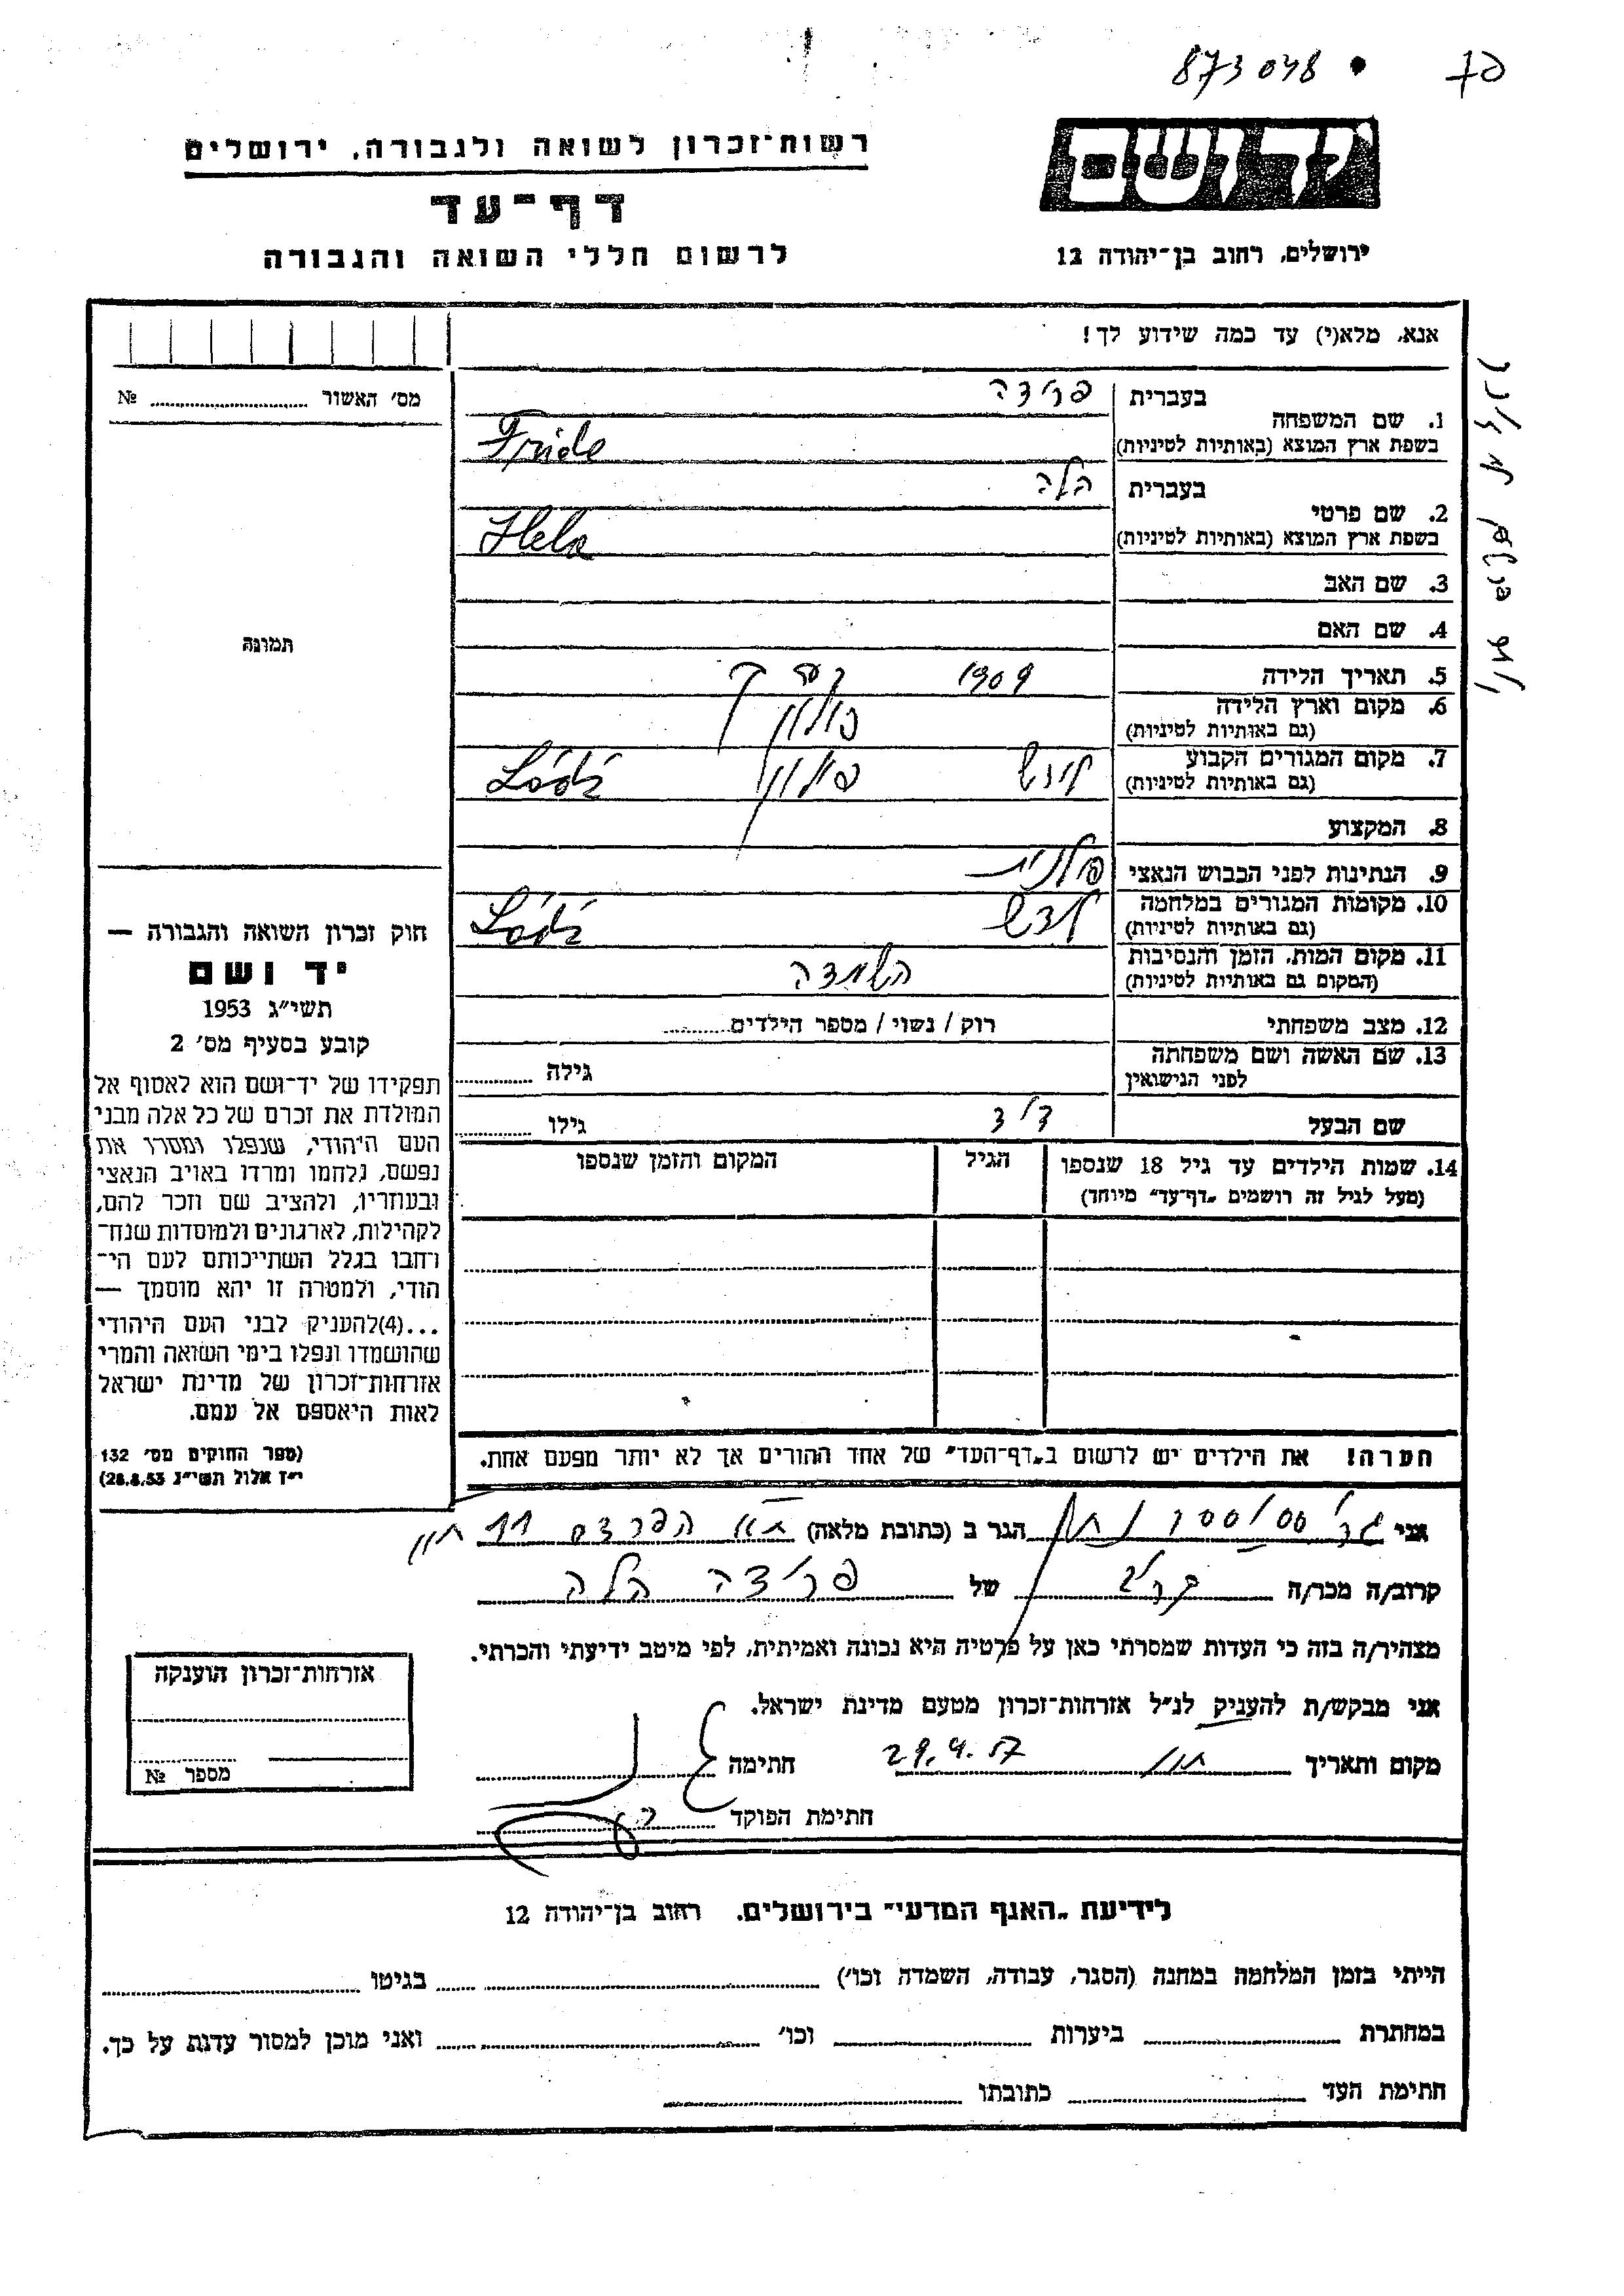 873048
רשות־זכרון לשואה ולגבורה, ירושלים
יד ושם
דף־עד
לרשום חללי השואה והגבורה
ירושלים, רחוב בן־יהודה 12
אנא, מלא(י) עד כמה שידוע לך!
מס׳ האשור ........ №
1. שם המשפחה
בעברית פרידה
בשפת ארץ המוצא (באותיות לטיניות) Fride
2. שם פרטי
בעברית הלה
בשפת ארץ המוצא (באותיות לטיניות) Hela
3. שם האב
4. שם האם
5. תאריך הלידה 1909
6. מקום וארץ הלידה
(גם באותיות לטיניות) פולין
7. מקום המגורים הקבוע
(גם באותיות לטיניות) לודש פולין Łódź
8. המקצוע
9. הנתינות לפני הכבוש הנאצי פולנית
10. מקומות המגורים במלחמה
(גם באותיות לטיניות) לודש Łódź
11. מקום המות, הזמן והנסיבות
(המקום גם באותיות לטיניות) השמדה
12. מצב משפחתי רוק / נשוי / מספר הילדים........
13. שם האשה ושם משפחתה
לפני הנישואין גילה ........
שם הבעל דוד גילו ........
14. שמות הילדים עד גיל 18 שנספו
(מעל לגיל זה רושמים „דף־עד״ מיוחד)
הגיל
המקום והזמן שנספו
הערה! את הילדים יש לרשום ב„דף־העד״ של אחד ההורים אך לא יותר מפעם אחת.
תמונה
חוק זכרון השואה והגבורה —
יד ושם
תשי״ג 1953
קובע בסעיף מס׳ 2
תפקידו של יד־ושם הוא לאסוף אל
המולדת את זכרם של כל אלה מבני
העם היהודי, שנפלו ומסרו את
נפשם, נלחמו ומרדו באויב הנאצי
ובעוזריו, ולהציב שם וזכר להם,
לקהילות, לארגונים ולמוסדות שנח־
רחבו בגלל השתייכותם לעם הי־
הודי, ולמטרה זו יהא מוסמך —
...(4)להעניק לבני העם היהודי
שהושמדו ונפלו בימי השואה והמרי
אזרחות־זכרון של מדינת ישראל
לאות היאספם אל עמם.
(ספר החוקים מס׳ 132
י״ז אלול תשי״ג 28.8.53)
אני נתן הגר ב (כתובת מלאה) הפרדס 11 חולון
קרוב/ה מכר/ה קרוב של פרידה הלה
מצהיר/ה בזה כי העדות שמסרתי כאן על פרטיה היא נכונה ואמיתית, לפי מיטב ידיעתי והכרתי.
אני מבקש/ת להעניק לנ״ל אזרחות־זכרון מטעם מדינת ישראל.
מקום ותאריך חולון 29.4.57 חתימה
חתימת הפוקד
אזרחות־זכרון הוענקה
מספר №
לידיעת „האגף המדעי״ בירושלים, רחוב בן־יהודה 12
הייתי בזמן המלחמה במחנה (הסגר, עבודה, השמדה וכו׳) ........ בגיטו ........
במחתרת ........ ביערות ........ וכו׳ ........ ואני מוכן למסור עדות על כך.
חתימת העד ........ כתובתו ........